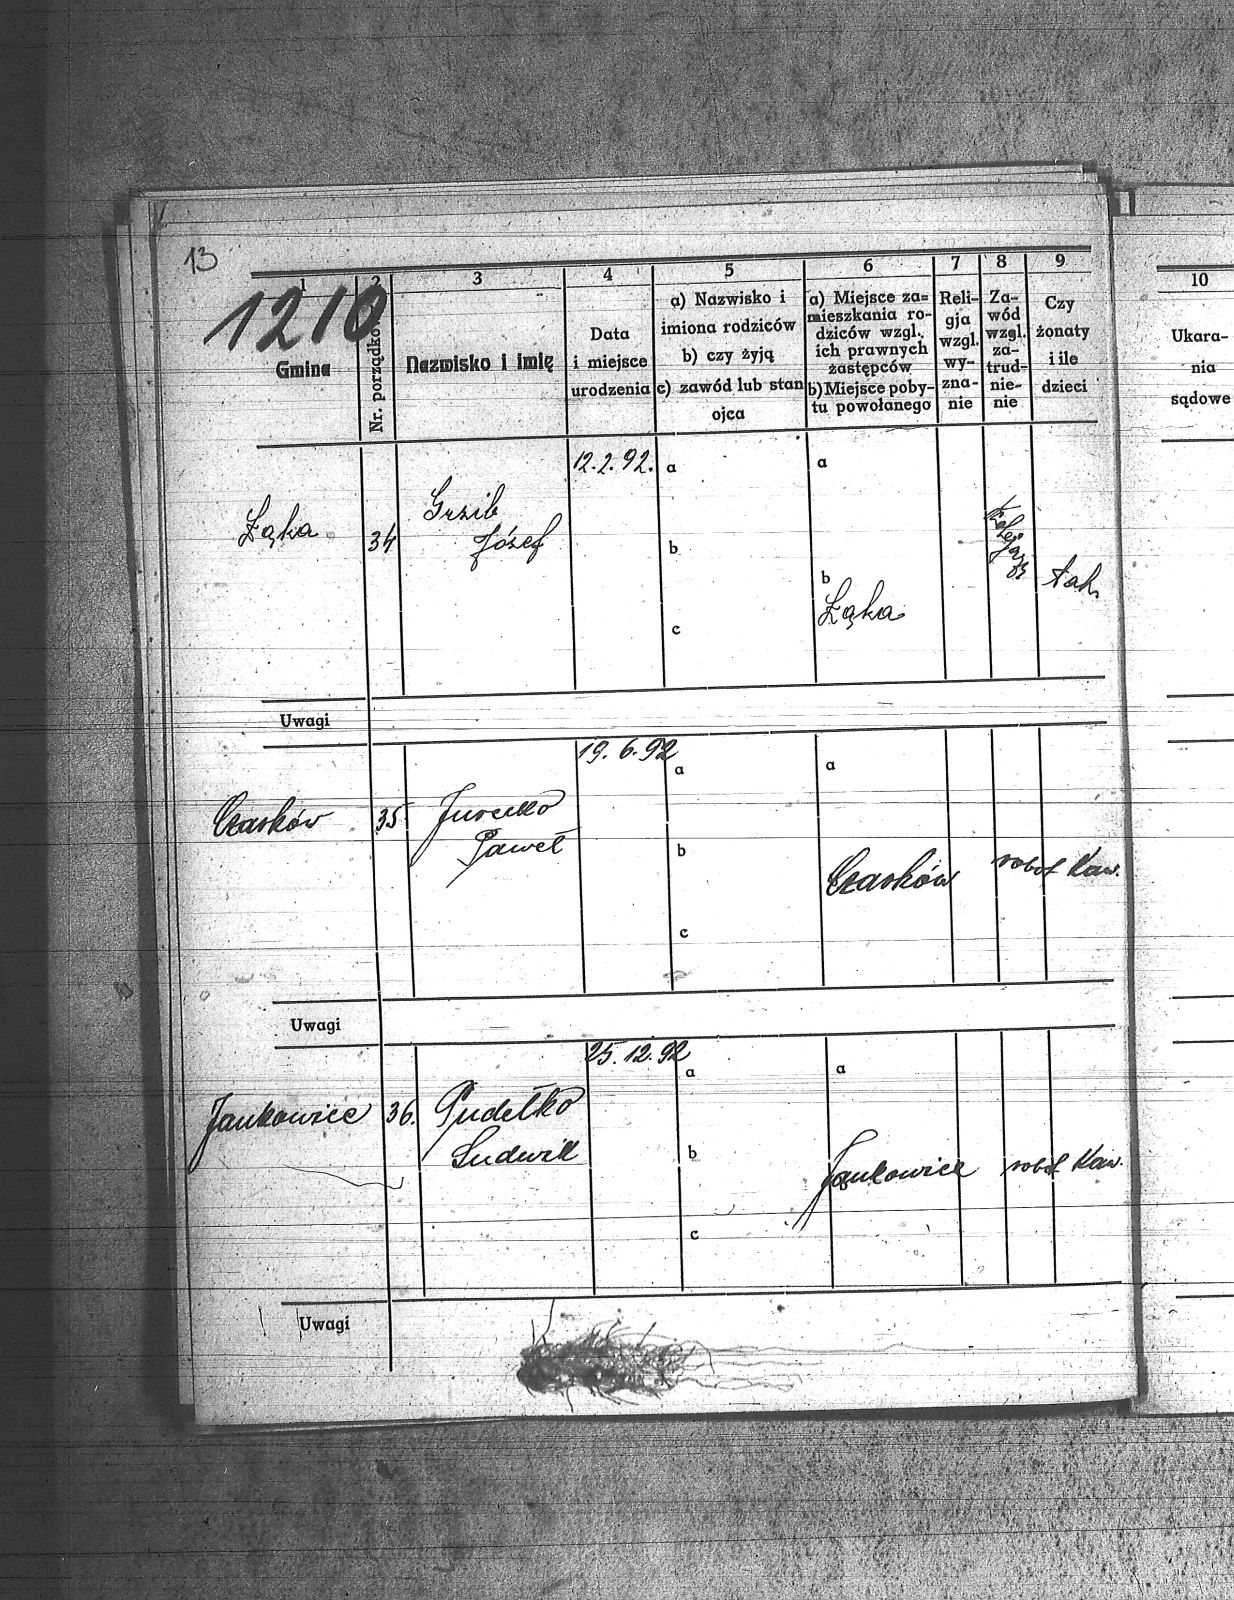 13
1 2 3 4 5 6 7 8 9 10
1210
Gmina
Nr. porządko
Nazwisko i imię
Data
i miejsce
urodzenia
a) Nazwisko i
imiona rodziców
b) czy żyją
c) zawód lub stan
ojca
a) Miejsce za=
mieszkania ro-
dziców wzgl.
ich prawnych
zastępców
b) Miejsce poby-
tu powołanego
Reli-
gja
wzgl.
wy-
zna-
nie
Za-
wód
wzgl.
za-
trud-
nie-
nie
Czy
żonaty
i ile
dzieci
Ukara-
nia
sądowe
Łąka
34
Grzib
Józef
12.2.92.
a
b
c
a
b
Łąka
tak
Uwagi
Czarków
35
Jureczko
Paweł
19.6.92
a
b
c
a
Czarków
robot Kaw.
Uwagi
Jankowice
36.
Pudełko
Ludwik
25.12.92
a
b
c
a
b
Jankowice
robot Kaw.
Uwagi